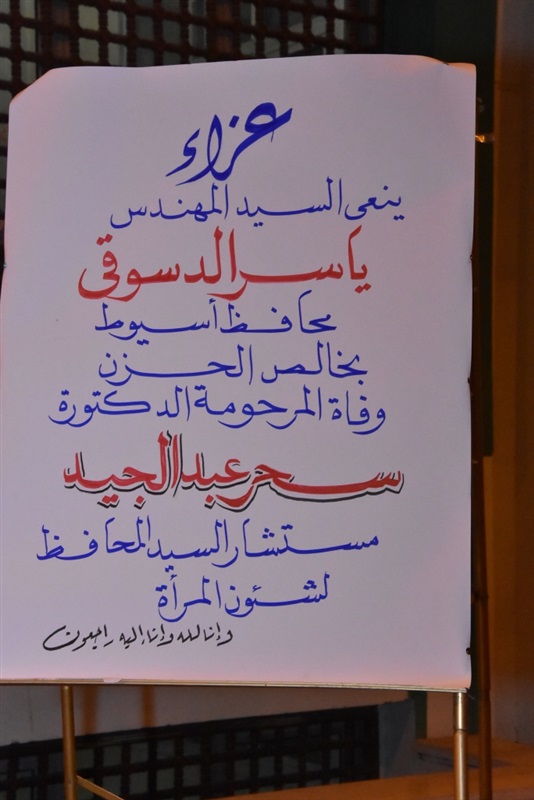 عزاء
ينعى السيد المهندس
ياسر الدسوقى
محافظ أسيوط
بخالص الحزن
وفاة المرحومة الدكتورة
سحر عبد الجيد
مستشار السيد المحافظ
لشئون المرأة
وإنا لله وإنا إليه راجعون